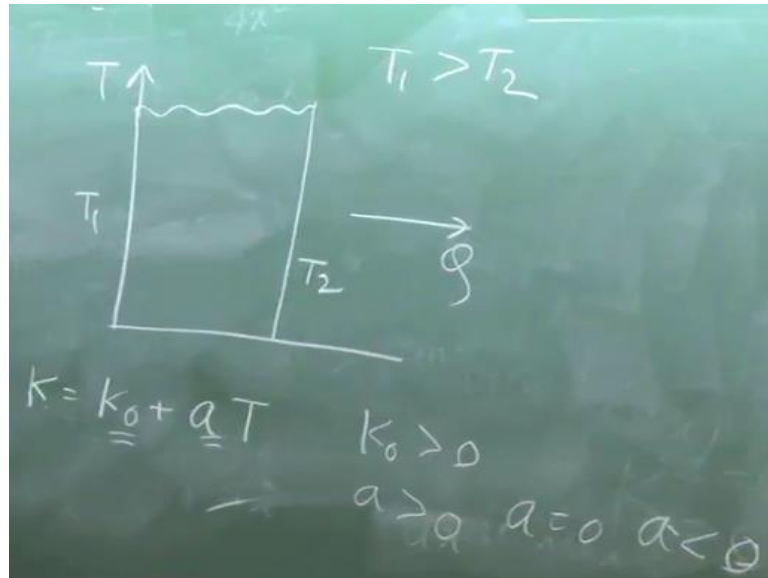 4x
T
T₁ > T₂
T₁
T₂
Q
K = k₀ + a T
K₀ > 0
a > 0 a = 0 a < 0